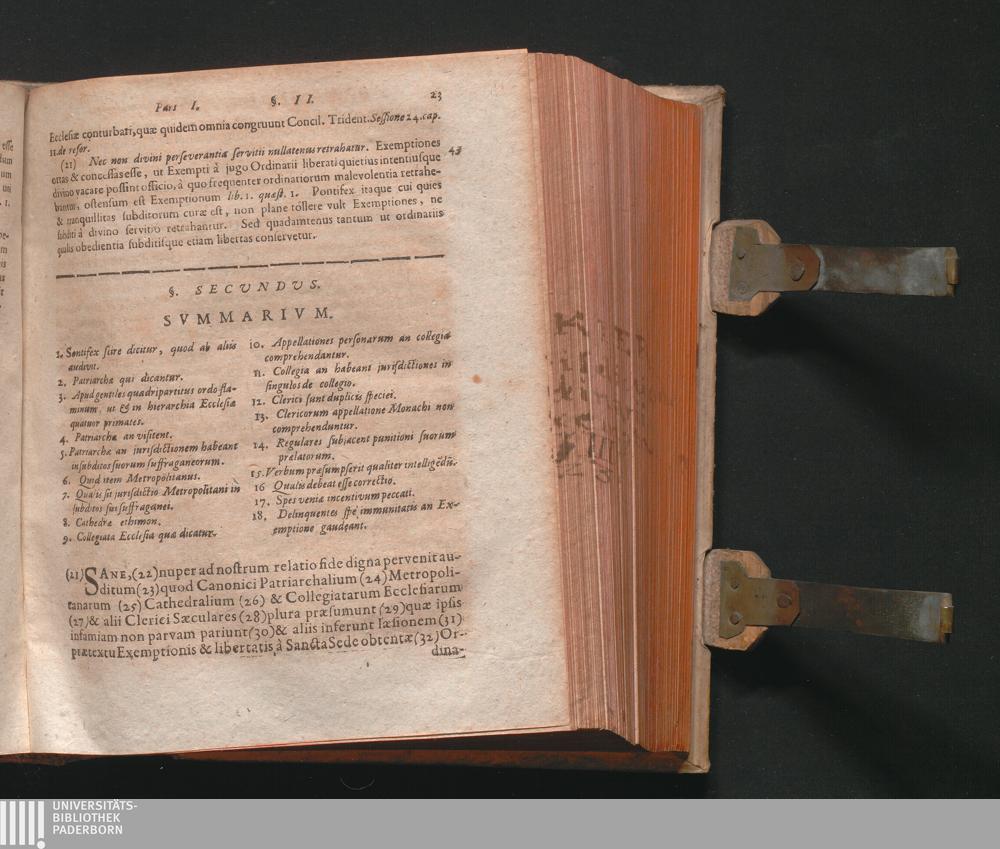 Pars I. §. II. 23
Ecclesiæ conturbati, quæ quidem omnia congruunt Concil. Trident. Sessione 24. cap.
11. de refor.
(21) Nec non divini perseverantiæ servitii nullatenus retrahatur. Exemptiones 43
ortas & concessas esse, ut Exempti à jugo Ordinarii liberati quietius intentiusque
divino vacare possint officio, à quo frequenter ordinatiorum malevolentia retrahe-
bantur, ostensum est Exemptionum lib. 1. quæst. 1. Pontifex itaque cui quies
& tranquillitas subditorum curæ est, non plane tollere vult Exemptiones, ne
subditi à divino servitio retrahantur. Sed quadamtenus tantum ut ordinariis
qualis obedientia subditisque etiam libertas conservetur.
§. SECUNDUS.
SVMMARIVM.
1. Sontifex scire dicitur, quod ab aliis
audivit.
2. Patriarchæ qui dicantur.
3. Apud gentiles quadripartitus ordo fla-
minum, ut & in hierarchia Ecclesiæ
quatuor primates.
4. Patriarchæ an visitent.
5. Patriarchæ an jurisdictionem habeant
in subditos suorum suffraganeorum.
6. Quid item Metropolitanus.
7. Qualis sit jurisdictio Metropolitani in
subditos sui suffraganei.
8. Cathedræ ethimon.
9. Collegiata Ecclesia quæ dicatur.
10. Appellationes personarum an collegia
comprehendantur.
11. Collegia an habeant jurisdictiones in
singulos de collegio.
12. Clerici sunt duplicis speciei.
13. Clericorum appellatione Monachi non
comprehenduntur.
14. Regulares subjacent punitioni suorum
prælatorum.
15. Verbum præsumpserit qualiter intelligẽdũ.
16 Qualis debeat esse correctio.
17. Spes veniæ incentivum peccati.
18. Delinquentes spe immunitatis an Ex-
emptione gaudeant.
(21) SANE, (22) nuper ad nostrum relatio fide digna pervenit au-
ditum (23) quod Canonici Patriarchalium (24) Metropoli-
tanarum (25) Cathedralium (26) & Collegiatarum Ecclesiarum
(27) & alii Clerici Sæculares (28) plura præsumunt (29) quæ ipsis
infamiam non parvam pariunt (30) & aliis inferunt læsionem (31)
prætextu Exemptionis & libertatis à Sancta Sede obtentæ (32) Or-
dina-
UNIVERSITÄTS-
BIBLIOTHEK
PADERBORN